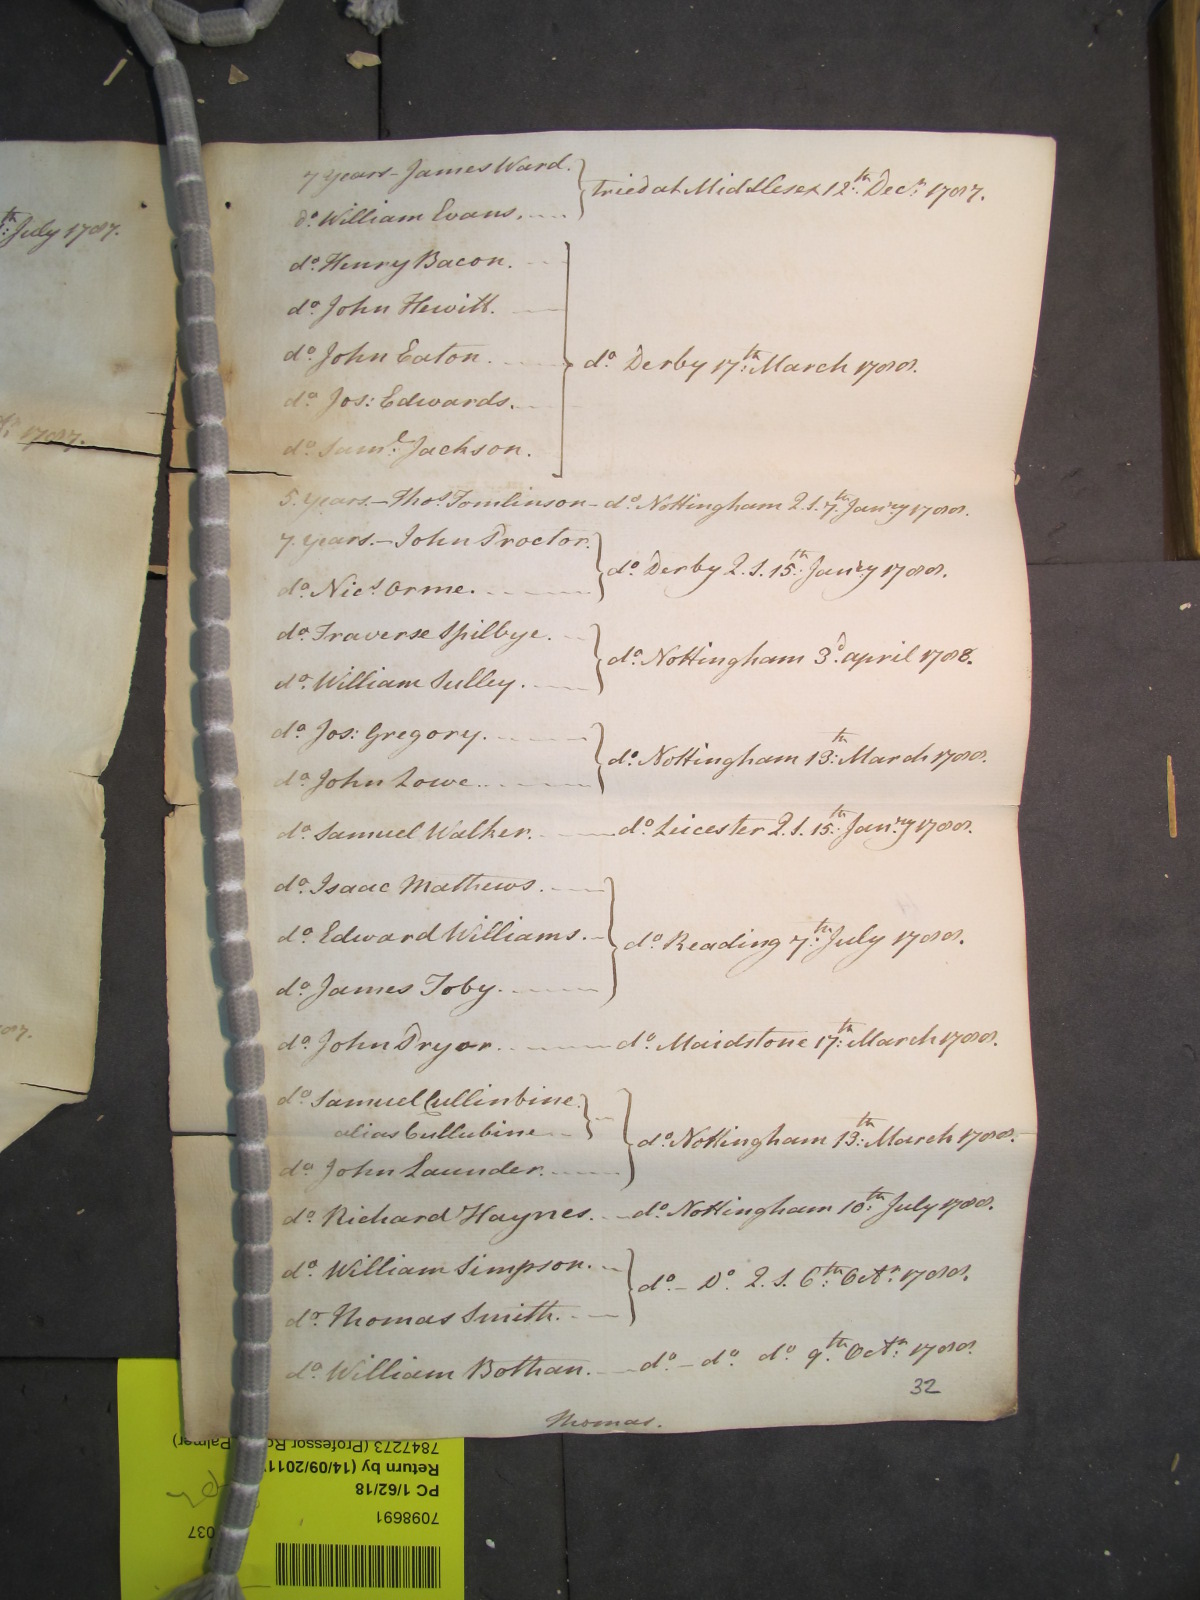 th July 1787.
1787.
87.
7 Years - James Ward.
do. William Evans.
tried at Middlesex 12th. Decr. 1787.
do. Henry Bacon.
do. John Hewitt.
do. John Eaton.
do. Jos: Edwards.
do. Saml. Jackson.
do. Derby 17th. March 1788.
5. Years. - Thos. Tomlinson - do. Nottingham Q. S. 7th. Janry 1788.
7. Years. - John Proctor.
do. Nics. Orme.
do. Derby Q. S. 15th. Janry 1788.
do. Traverse Spilbye.
do. William Sulley.
do. Nottingham 3d. april 1788.
do. Jos: Gregory.
do. John Lowe.
do. Nottingham 13th. March 1788.
do. Samuel Walker. do. Leicester Q. S. 15th. Janry 1788.
do. Isaac Mathews.
do. Edward Williams.
do. James Toby.
do. Reading 7th. July 1788.
do. John Pryor. do. Maidstone 17th. March 1788.
do. Samuel Cullinbine
alias Cullubine
do. John Launder.
do. Nottingham 13th. March 1788.
do. Richard Haynes. do. Nottingham 10th. July 1788.
do. William Simpson.
do. Thomas Smith.
do. - Do. Q. S. 6th. Octr. 1788.
do. William Bothan. do. - do. do. 9th. Octr. 1788.
32
Thomas.
7847273 (Professor Ro Palmer)
Return by (14/09/2011
PC 1/62/18
7098691
037